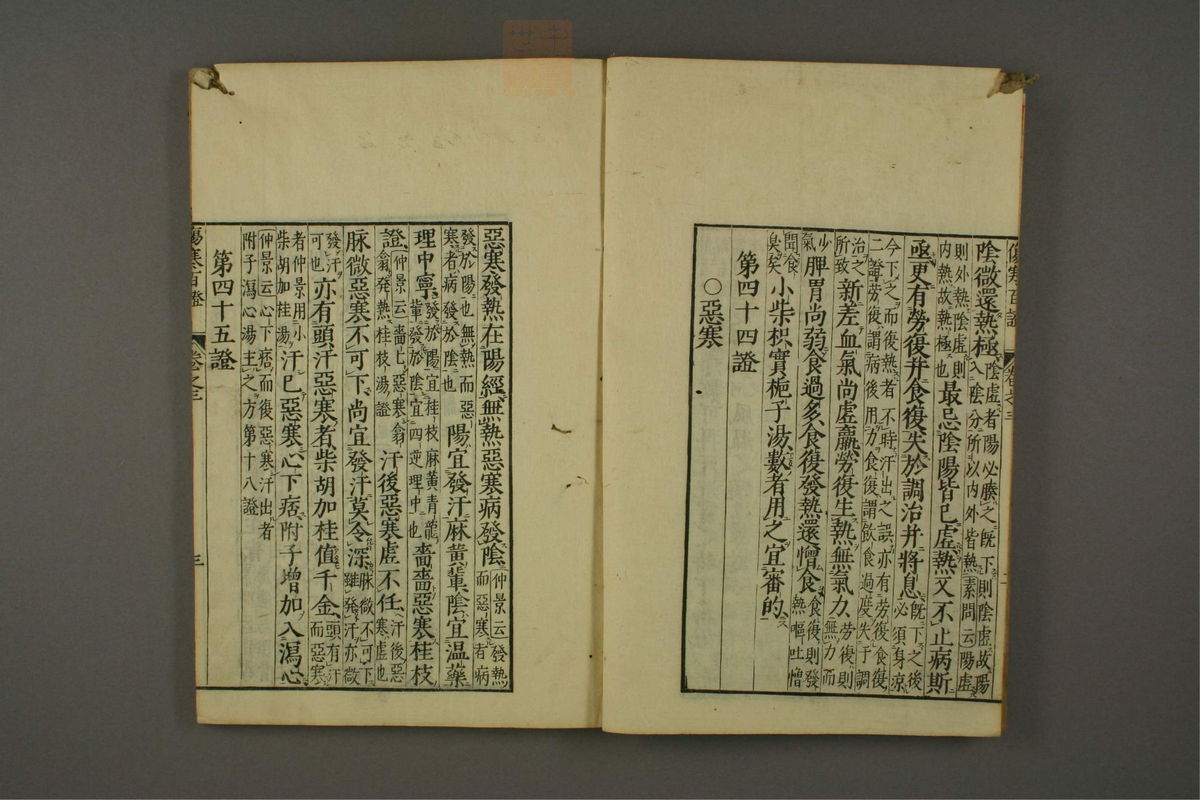 傷寒百證 卷之三 二
陰微還熱極陰虛者陽必勝之既下則陰虛故陽入陰分所以內外皆熱素問云陽虛
則外熱陰虛則內熱故熱極也最忌陰陽皆已虛熱又不止病斯
亟更有勞復并食復失於調治并將息既下之後必須身涼
今下之而後熱者不時汗出之誤亦有勞復食復二證勞復謂病後用力食復謂飲食過度失于調
治之所致新差血氣尚虛羸勞復生熱無氣力勞復則無力而
少氣脾胃尚弱食過多食復發熱還憎食食復則發熱嘔吐憎
聞食臭矣小柴枳實梔子湯數者用之宜審的
第四十四證
○惡寒
惡寒發熱在陽經無熱惡寒病發陰仲景云發熱而惡寒者病
發於陽也無熱而惡寒者病發於陰也陽宜發汗麻黃輩陰宜溫藥
理中寧發於陽宜桂枝麻黃青龍輩發於陰宜四逆理中也嗇嗇惡寒桂枝
證仲景云嗇嗇惡寒翕翕發熱桂枝湯證汗後惡寒虛不任汗後惡寒虛也
脉微惡寒不可下尚宜發汗莫令深脉微不可下雖發汗亦微
發汗可也亦有頭汗惡寒者柴胡加桂值千金頭有汗而惡寒
者仲景用小柴胡加桂湯汗已惡寒心下痞附子增加入瀉心
仲景云心下痞而復惡寒汗出者附子瀉心湯主之方第十八證
第四十五證
傷寒百證 卷之三 三